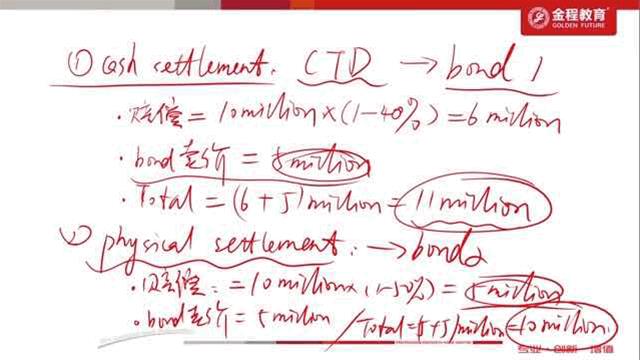 金程教育
GOLDEN FUTURE
① cash settlement. CTD → bond 1
· 赔偿 = 10 million × (1-40%) = 6 million
· bond卖价 = 5 million
· Total = (6+5) million = 11 million
② physical settlement: → bond2
· 赔偿: = 10 million × (1-50%) = 5 million
· bond卖价 = 5 million / Total = (5+5) million = 10 million.
专业·创新·增值